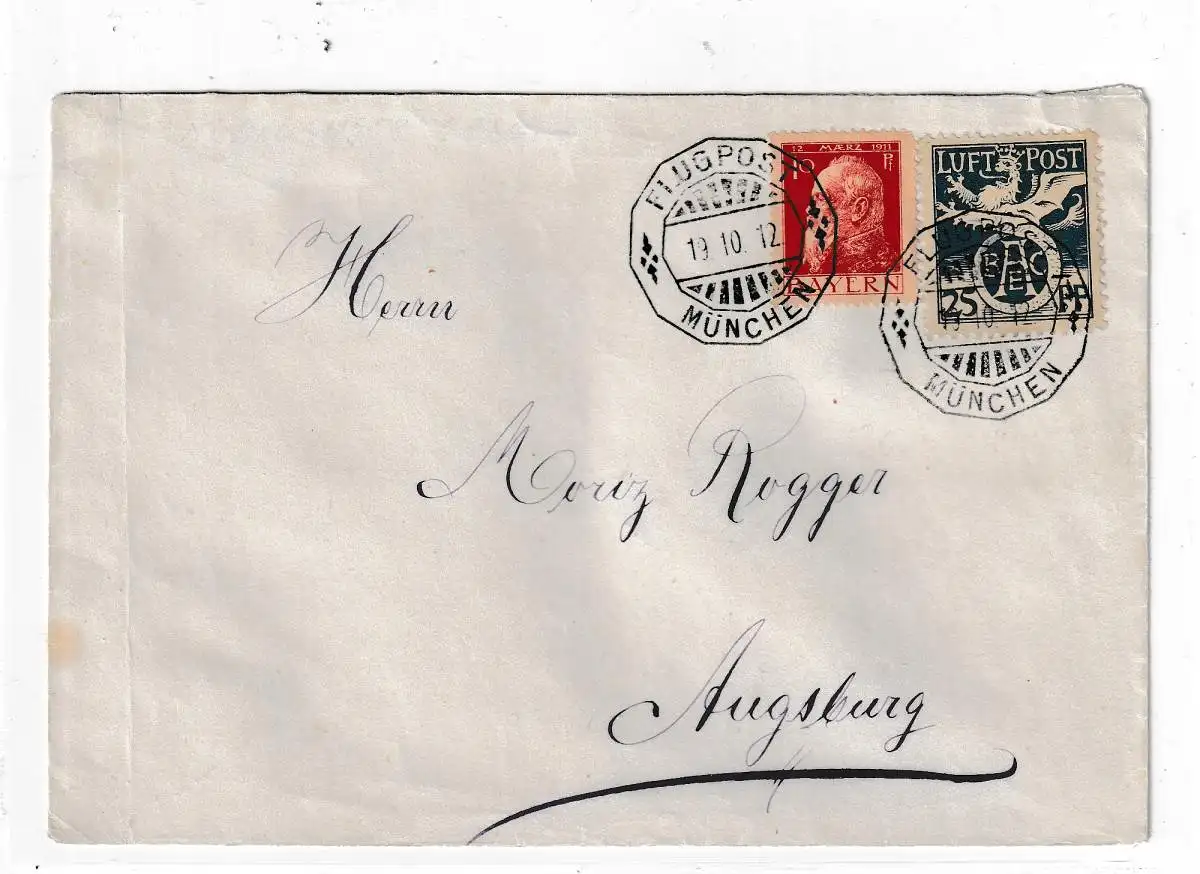 FLUGPOST
19.10.12.
MÜNCHEN
12 MÆRZ 1911
10 Pf
BAYERN
LUFT POST
BAEC
25 PF
FLUGPOST
19.10.12.
MÜNCHEN
Herrn
Moriz Rogger
Augsburg